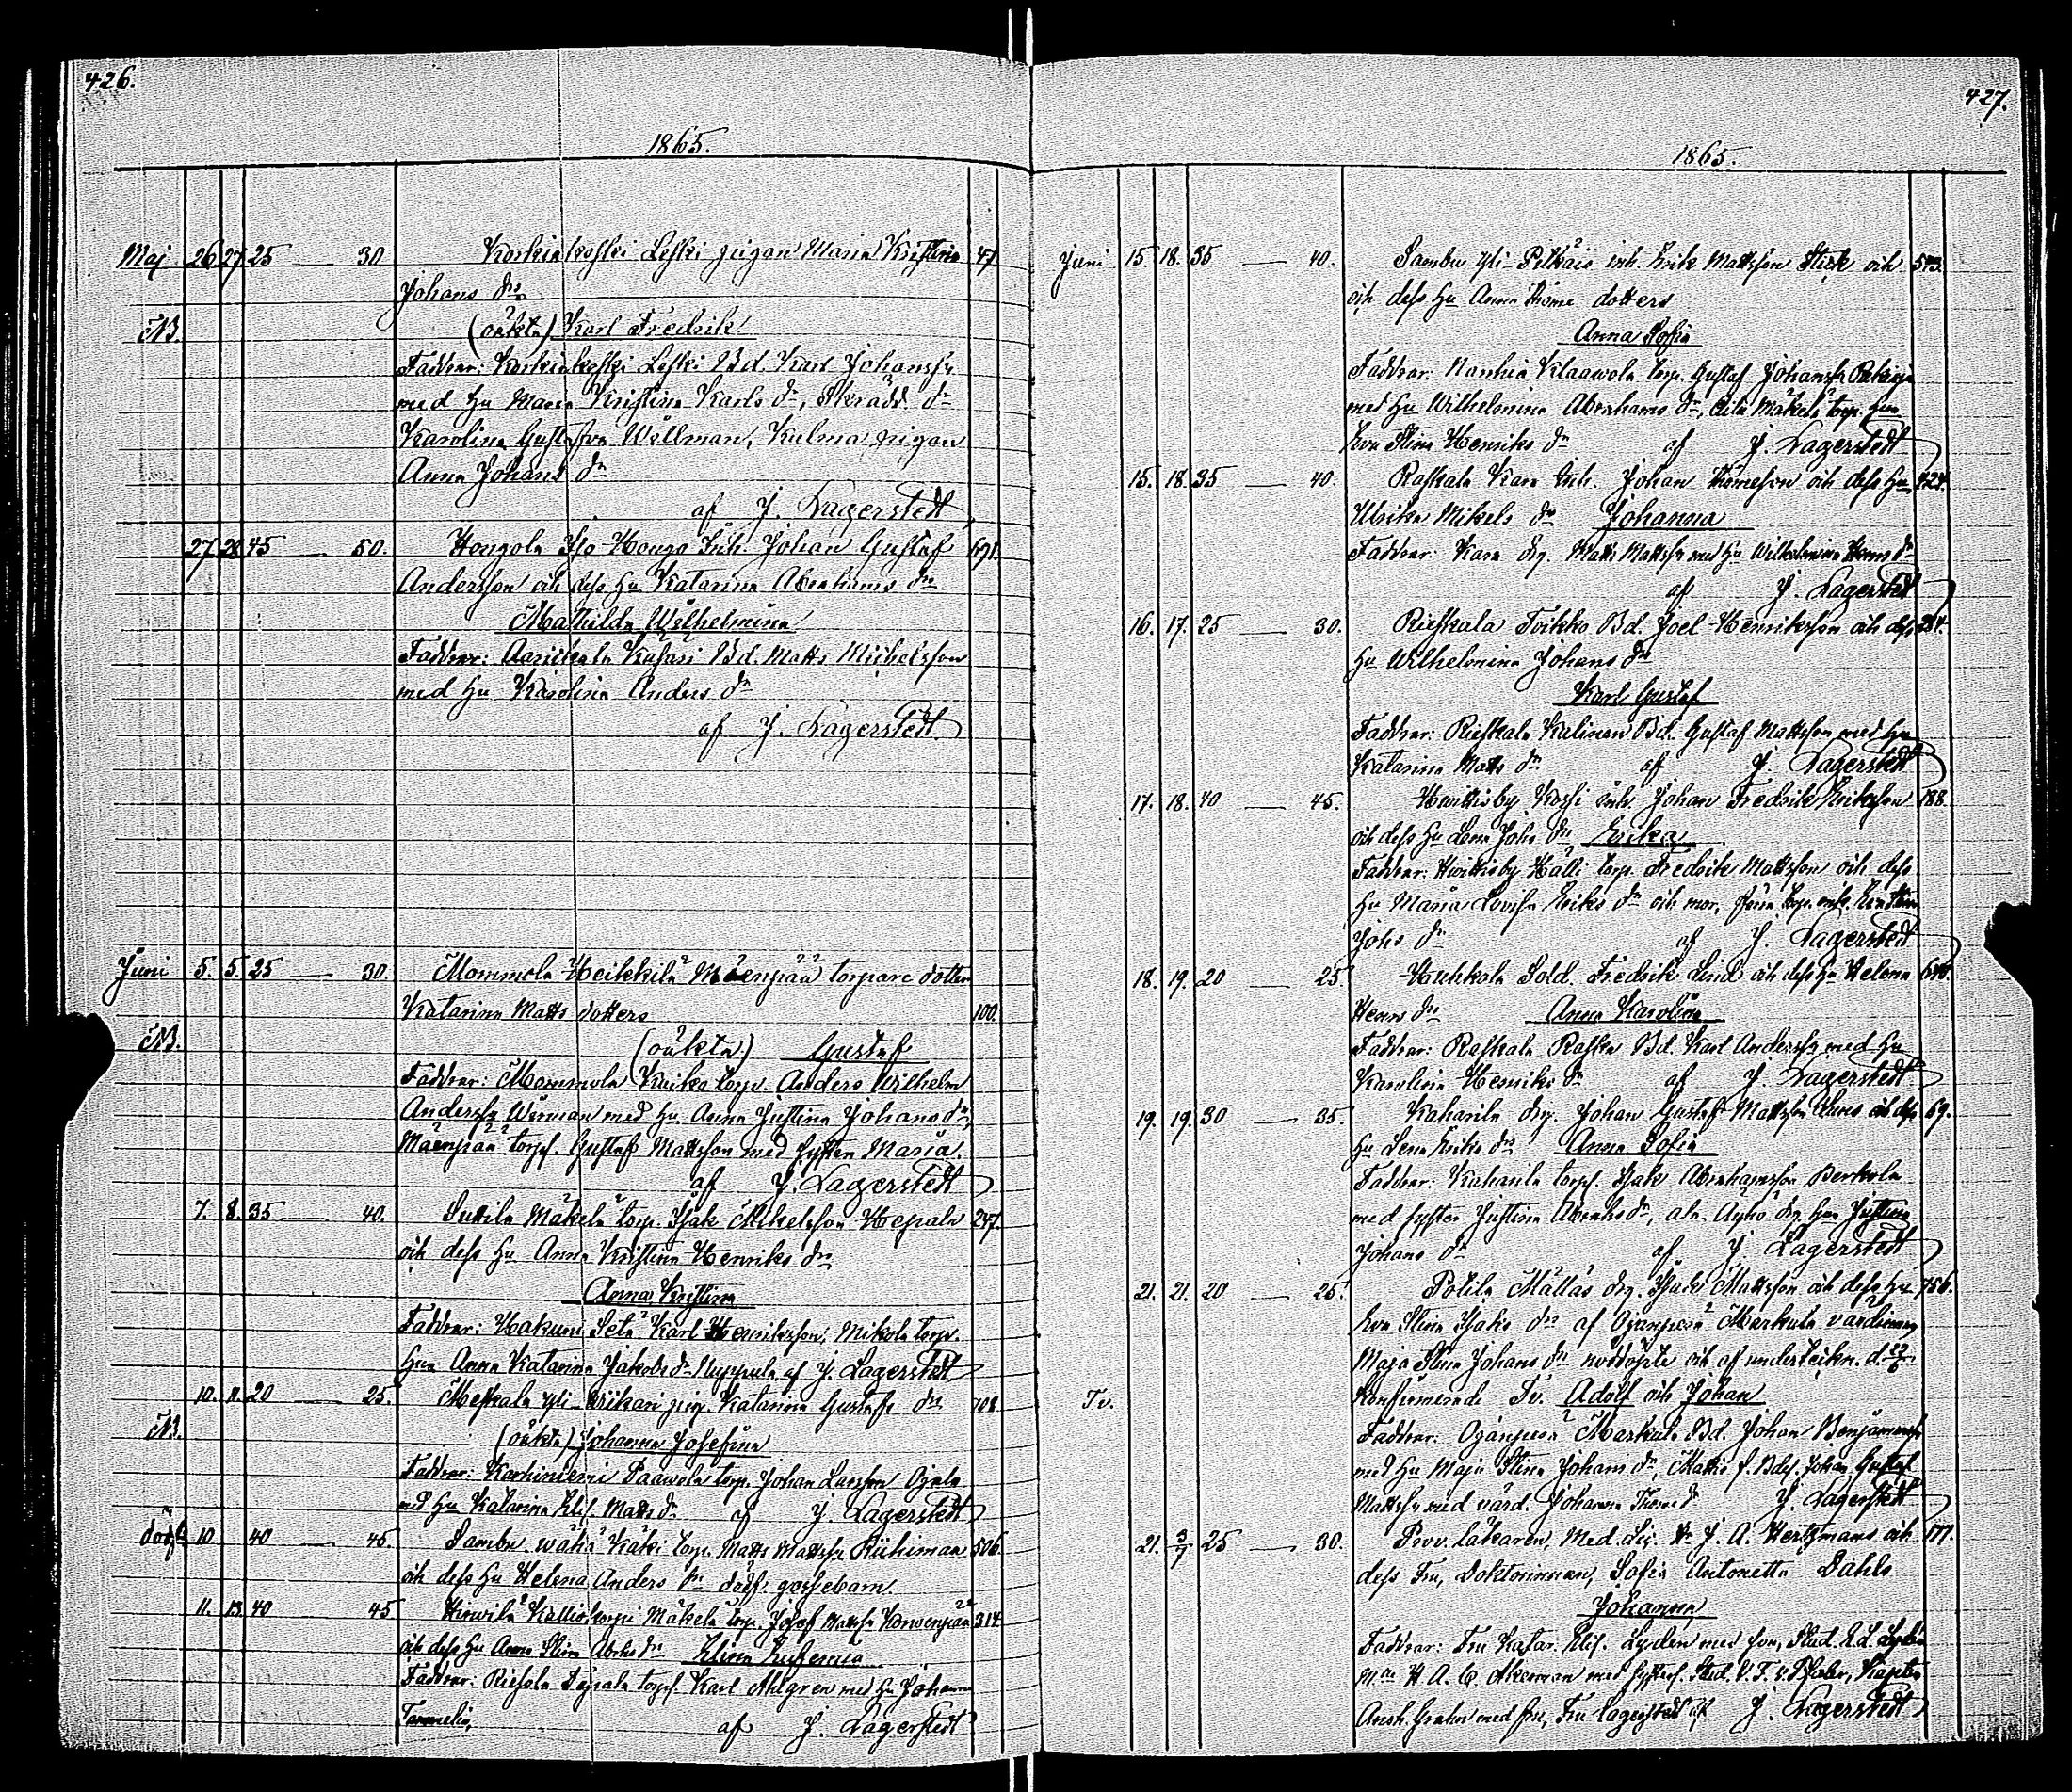 426.
1865.
Maj 26 27 25 — 30. Koskioikoski Leski pigan Maria Kristina 47
Johans dr
NB. (oäkta) Karl Fredrik
Faddrar: Leski Bd. Karl Johansfn
med hu Maria Kristina Karls dr, Skrädd. dr
Karolina Gustafva Wellman, Kulma pigan
Anna Johans dr
af J. Lagerstedt
27 28 45 — 50. Hongola Iso-Hongo Inh. Johan Gustaf 691.
Andersson och dess hu Katarina Abrahams dr
Mathilda Wilhelmina
Faddrar: Kasari Bd. Matts Michelsson
med hu Karolina Anders dr
af J. Lagerstedt
Juni 5. 5. 25 — 30. Mommola Heikkilä Mäenpää torpare dotter
Katarina Matts dotters 100.
NB. (oäkta) Gustaf
Faddrar: Mommola torp. Anders Wilhelm
Andersfn Werman med hu Anna Justina Johans dr,
Mäenpää torps. Gustaf Mattsson med syster Maria.
af J. Lagerstedt
7. 8. 35 — 40. Suttila Mäkelä torp. Isak Mikelsson Hepala 247.
och dess hu Anna Kristina Henriks dr
Anna Kristina
Faddrar: Hakuni Setä Karl Henriksson, Mikola torp.
hu Anna Katarina Jakobs dr Nuppula af J. Lagerstedt
10. 11. 20 — 25. Meskala yli pig. Katarina Gustafs dr 708
NB. (oäkta) Johanna Josefina
Faddrar: Karhiniemi Paavola torp. Johan Larsson Ojala
med hu Katarina Elis. Matts dr af J. Lagerstedt
dödf. 10 40 — 45. Sambu wähä Käki torp. Matts Mattsfn Riihimaa 506.
och dess hu Helena Anders dr dödf. gossebarn.
11. 13. 40 — 45 Mäkelä torp. Josef Mattsfn Korvenpää 314
och dess hu Anna Stina Abrhs dr Elina Eufemia
Faddrar: torps. Karl Ahlgren med hu Johanna
Tammelin, af J. Lagerstedt
427.
1865.
Juni 15. 18. 35 — 40. Sambu yli-Pitkäis inh. Erik Mattsson och 573.
och dess hu Anna Thome dotters
Anna Sofia
Faddrar: Nanhia Klaavola torp. Gustaf Johansfn
med hu Wilhelmina Abrahams dr, Mäkelä torp. hu
Eva Stina Henriks dr af J. Lagerstedt
15. 18. 35 — 40. Raskala Kara Inh. Johan Thomesson och dess hu 424.
Ulrika Mikels dr Johanna
Faddrar: Kara drg. Matts Mattsfn med hu Wilhelmina dr
af J. Lagerstedt
16. 17. 25 — 30. Rieskala Toikko Bd. Joel Henriksson och dess 284.
hu Wilhelmina Johans dr
Karl Gustaf
Faddrar: Rieskala Kalinen Bd. Gustaf Mattsson med hu
Katarina Matts dr af J. Lagerstedt
17. 18. 40 — 45. Hvittisby inh. Johan Fredrik Eriksson 188.
och dess hu Lena Johs dr Erika
Faddrar: Hvittisby Hälli torp. Fredrik Mattsson och dess
hu Maria Lovisa Eriks dr och mor.
Johs dr af J. Lagerstedt
18. 19. 20 — 25. Huhkola Sold. Fredrik Lind och dess hu Helena 640.
Henrs dr Anna Karolina
Faddrar: Raskala Raska Bd. Karl Andersfn med hu
Karolina Henriks dr af J. Lagerstedt
19. 19. 30 — 35. Kaharila drg. Johan Gustaf Mattsson och dess 69.
hu Lena Eriks dr Anna Sofia
Faddrar: Kaharila torps. Isak Abrahamsson
med syster Justina Abrahs dr, drg. hu Justina
Johans dr af J. Lagerstedt
21. 21. 20 — 25. Potila Mälläs drg. Isak Mattsson och dess hu 756.
Eva Stina Isaks dr af Markula värdinnan
Maja Stina Johans dr nöddöpte och af underteckn. d.
Tv. konfirmerade Tv. Adolf och Johan
Faddrar: Markula Bd. Johan Benjaminsfn
med hu Maja Stina Johans dr, Johan Gustaf
Mattsfn med värd. Johanna Thome dr J. Lagerstedt
21. 3/7 25 — 30. Prov. läkaren, Med. Lic. Hr J. A. Hertzmans och 177.
dess Fru, Doktorinnan, Sofia Antonetta Dahls
Johanna
Faddrar: Fru Katar. Elis. Lydén med son, Stud.
H. A. C. Åkerman med Stud.
med fru, Fru Lagerstedt af J. Lagerstedt